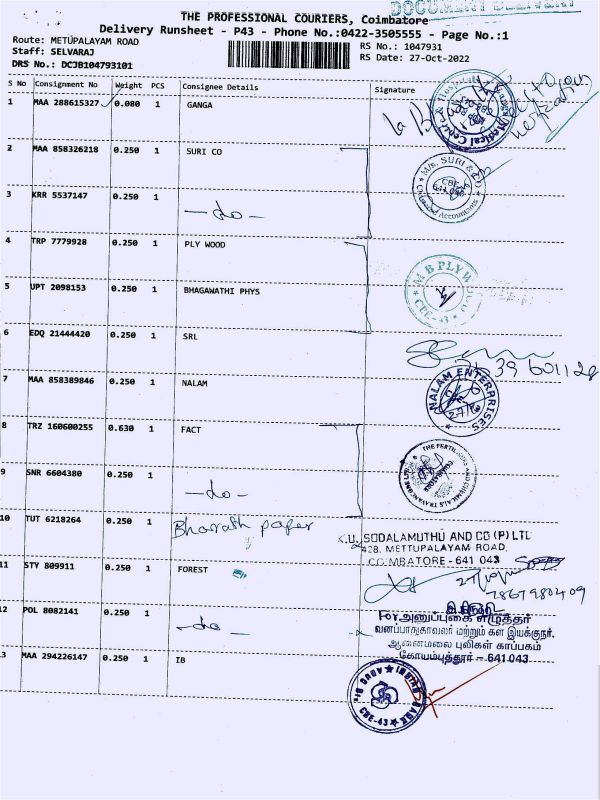 DOCUMENT DELIVERY
THE PROFESSIONAL COURIERS, Coimbatore
Delivery Runsheet - P43 - Phone No.:0422-3505555 - Page No.:1
Route: METUPALAYAM ROAD
RS No.: 1047931
Staff: SELVARAJ
RS Date: 27-Oct-2022
DRS No.: DCJB104793101
S No Consignment No Weight PCS Consignee Details Signature
1 MAA 288615327 0.080 1 GANGA
2 MAA 858326218 0.250 1 SURI CO
M/s. SURI & CO
CBE
641 043
Chartered Accountants
3 KRR 5537147 0.250 1 -do-
4 TRP 7779928 0.250 1 PLY WOOD
M B PLYWOOD
CBE-43
5 UPT 2098153 0.250 1 BHAGAWATHI PHYS
6 EDQ 21444420 0.250 1 SRL
39 601128
7 MAA 858389846 0.250 1 NALAM
NALAM ENTERPRISES
8 TRZ 160600255 0.630 1 FACT
THE FERTILISERS AND CHEMICALS TRAVANCORE
9 SNR 6604380 0.250 1 -do-
10 TUT 6218264 0.250 1 Bharath paper
K.U. SODALAMUTHU AND CO (P) LTD
428, METTUPALAYAM ROAD,
COIMBATORE - 641 043
11 STY 809911 0.250 1 FOREST
27/10/22
7867980409
12 POL 8082141 0.250 1 -do-
For அனுப்புகை எழுத்தர்
வனப்பாதுகாவலர் மற்றும் கள இயக்குநர்,
ஆனைமலை புலிகள் காப்பகம்
கோயம்புத்தூர் - 641 043
13 MAA 294226147 0.250 1 IB
INDIAN BANK
CBE-43